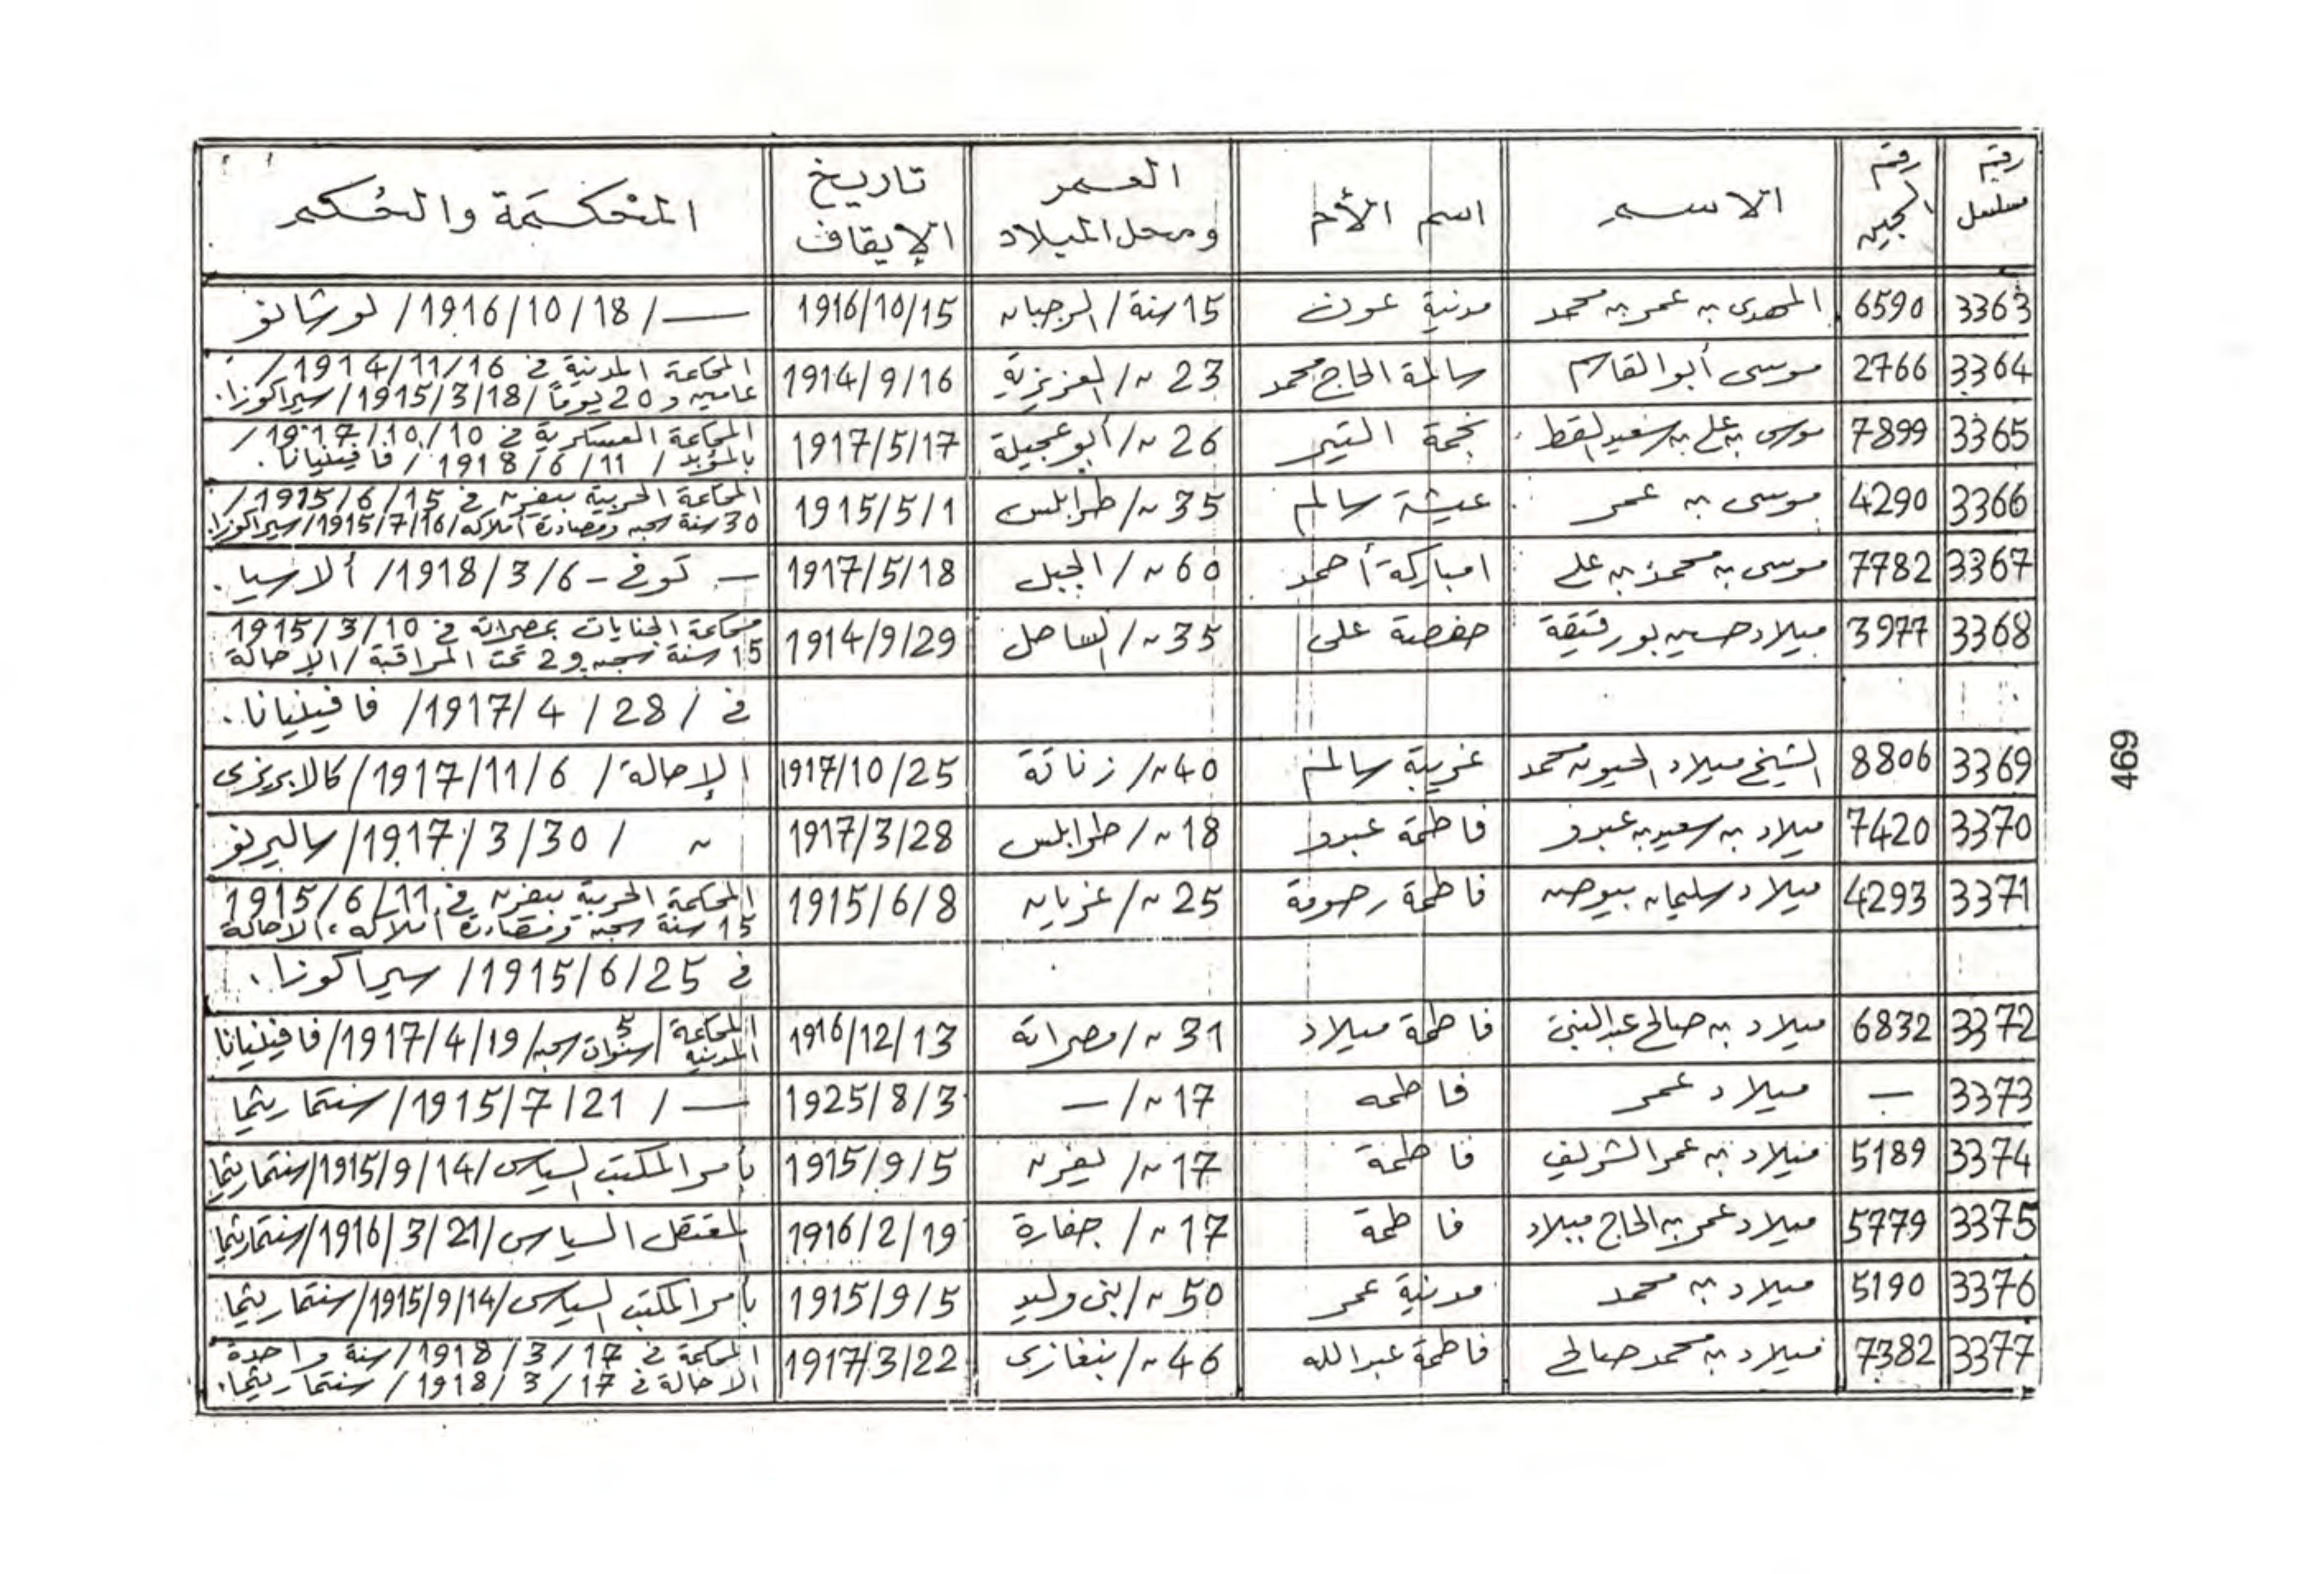 رقم مسلسل | رقم السجين | الاسم | اسم الأم | العمر ومحل الميلاد | تاريخ الإيقاف | المحكمة والحكم
3363 | 6590 | المهدى بن عمر بن محمد | مدنية عون | 15 سنة / الرجبان | 1916/10/15 | — / 1916/10/18 / لوشانو
3364 | 2766 | موسى أبوالقاسم | سالمة الحاج محمد | 23 ~ / العزيزية | 1914/9/16 | المحاكمة المدنية في 1914/11/16 /
عامين و 20 يوماً / 1915/3/18 / سيراكوزا.
3365 | 7899 | موسى بن على بن سعيد القط | نجمة التير | 26 ~ / أبوعجيلة | 1917/5/17 | المحاكمة العسكرية في 1917/10/10 /
بالمؤبد / 1918/6/11 / فافينيانا.
3366 | 4290 | موسى بن عمر | عيشة سالم | 35 ~ / طرابلس | 1915/5/1 | المحاكمة الحربية بيفرن في 1915/6/15 /
30 سنة سجن ومصادرة أملاكه / 1915/7/16 / سيراكوزا.
3367 | 7782 | موسى بن محمد بن على | امباركة أحمد | 60 ~ / الجبل | 1917/5/18 | — توفى - 1918/3/6 / ألاسيا.
3368 | 3977 | ميلاد حسين بورقيقة | حفصة على | 35 ~ / الساحل | 1914/9/29 | محاكمة الجنايات بمصراتة في 1915/3/10
15 سنة سجن و2 تحت المراقبة / الإحالة
في / 1917/4/28 / فافينيانا.
3369 | 8806 | الشيخ ميلاد الحيون محمد | غريبة سالم | 40 ~ / زناتة | 1917/10/25 | الإحالة / 1917/11/6 / كالابريزى
3370 | 7420 | ميلاد بن سعيد بن عبدو | فاطمة عبدو | 18 ~ / طرابلس | 1917/3/28 | ~ / 1917/3/30 / ساليرنو
3371 | 4293 | ميلاد سليمان بيوض | فاطمة رحومة | 25 ~ / غريان | 1915/6/8 | المحكمة الحربية بيفرن في 1915/6/11
15 سنة سجن ومصادرة أملاكه، الاحالة
في 1915/6/25 / سيراكوزا.
3372 | 6832 | ميلاد بن صالح عبدالنبى | فاطمة ميلاد | 31 ~ / مصراتة | 1916/12/13 | المحاكمة المدنية / 5 سنوات سجن / 1917/4/19 / فافينيانا
3373 | — | ميلاد عمر | فاطمه | 17 ~ / — | 1925/8/3 | — / 1915/7/21 / سنتماريثما
3374 | 5189 | ميلاد بن عمر الشريف | فاطمة | 17 ~ / يفرن | 1915/9/5 | بأمر المكتب السياسى / 1915/9/14 / سنتماريثما
3375 | 5779 | ميلاد عمر بن الحاج ميلاد | فاطمة | 17 ~ / جفارة | 1916/2/19 | المعتقل السياسى / 1916/3/21 / سنتماريثما
3376 | 5190 | ميلاد بن محمد | مدنية عمر | 50 ~ / بنى وليد | 1915/9/5 | بأمر المكتب السياسى / 1915/9/14 / سنتماريثما.
3377 | 7382 | ميلاد بن محمد صالح | فاطمة عبدالله | 46 ~ / بنغازى | 1917/3/22 | المحكمة في 1918/3/17 / سنة واحدة
الاحالة في 1918/3/17 / سنتماريثما.
469